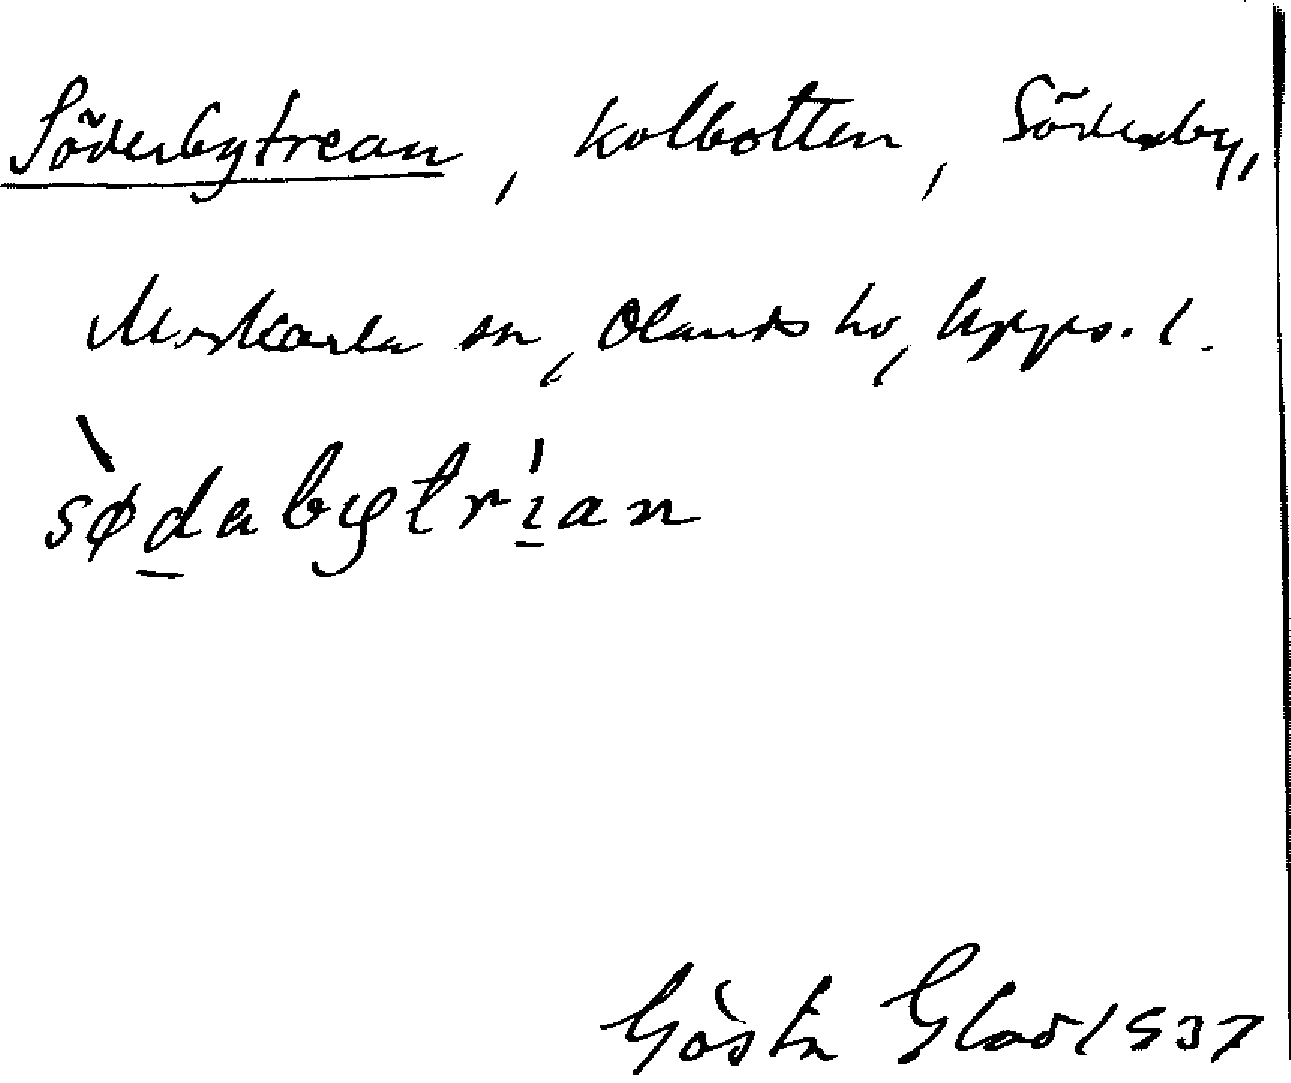 Söderbytrean, kolbotten, Söderby,
Morkarla sn, Olands hd, Upps. l.
sødabytrian
Gösta Glad 1937